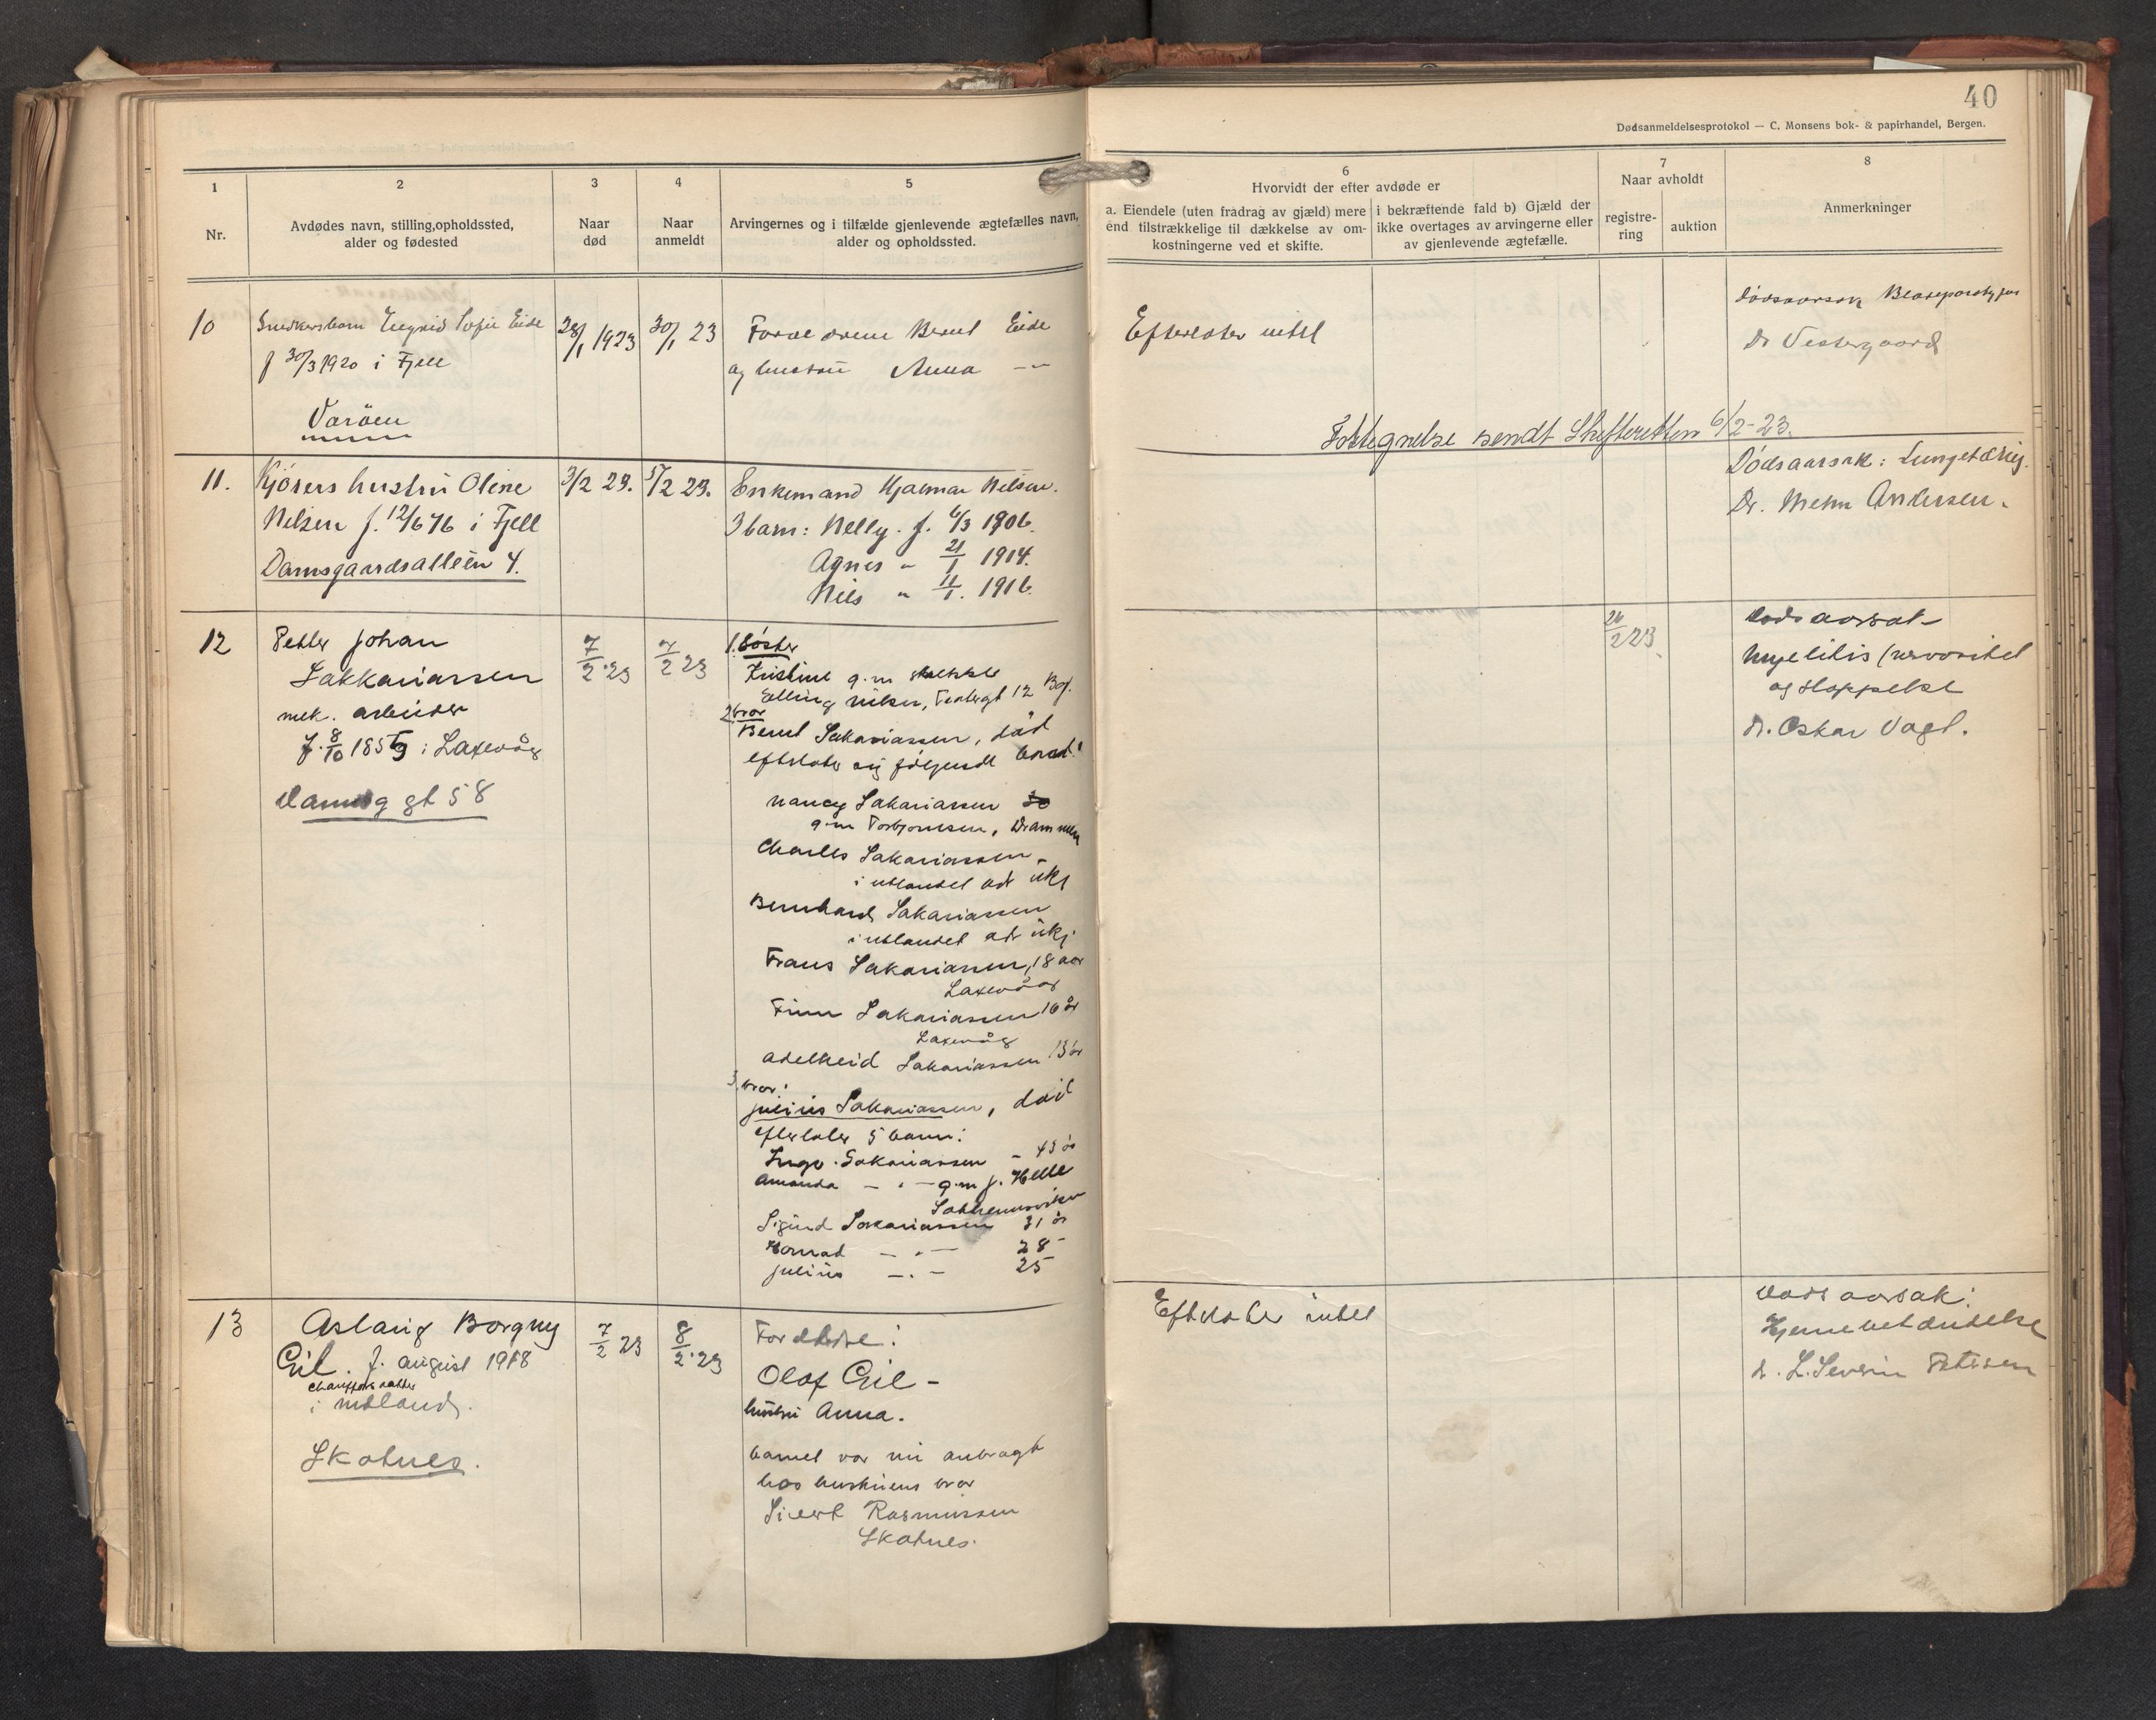 40
Dødsanmeldelsesprotokol — C. Monsens bok- & papirhandel, Bergen.
1
Nr.
2
Avdødes navn, stilling, opholdssted,
alder og fødested
3
Naar
død
4
Naar
anmeldt
5
Arvingernes og i tilfælde gjenlevende ægtefælles navn,
alder og opholdssted.
6
Hvorvidt der efter avdøde er
a. Eiendele (uten fradrag av gjæld) mere
end tilstrækkelige til dækkelse av om-
kostningerne ved et skifte.
i bekræftende fald b) Gjæld der
ikke overtages av arvingerne eller
av gjenlevende ægtefælle.
7
Naar avholdt
registre-
ring
auktion
8
Anmerkninger
10
Snedkersbarn Ingrid Sofie Eide
f 30/3 1920 i Fjell
Varöen
28/1 1923
30/1 23
Forældrene Bernt Eide
og hustru Anna -"-
Efterlater intet
Dødsaarsak
Dr Vestergaard
Fortegnelse sendt Skifteretten 6/2-23.
11.
Kjörers hustru Oline
Nilsen f. 12/6 76 i Fjell
Damsgaardsalleèn 4.
3/2 23.
5/2 23.
Enkemand Hjalmar Nilsen.
3 barn: Nelly. f. 6/3 1906.
Agnes " 21/1 1914.
Nils " 11/1. 1916.
Dødsaarsak: Lungetæring.
Dr. Mehn Andersen.
12
Petter Johan
Sakkariassen
mek. arbeider
f. 8/10 1859 i Laxevåg
Damsg gt 58
7/2 23
7/2 23
1. Söster
Kristine g.m
Elling Nilsen, 12 Bg.
2 bror
Bernt Sakariassen, död
efterlater sig følgende barn:
Nancy Sakariassen
g.m Torbjornsen, Drammen
Charles Sakariassen
i utlandet adr ukj
Bernhard Sakariassen
i utlandet adr ukj.
Frans Sakariassen, 18 aar
Laxevåg
Finn Sakariassen 16 år
Laxevåg
Adelheid Sakariassen 13 år
3. bror:
Julius Sakariassen, död
efterlater 5 barn:
Inga Sakariassen - 43 år
Amanda — " — g.m J. Helle
Sigurd Sakariassen 31 år
Konrad — " — 28 -
Julius — " — 25
26/2 23
Dødsaarsak
Myelitis (nervøsitet
og Sloppelse
dr. Oskar Vogt.
13
Aslaug Borgny
Gil. f. august 1918
chaufførs datter
i utland.
Skotnes.
7/2 23
8/2 23
Foreldre:
Olaf Gil -
hustru Anna.
barnet var nu anbragt
hos hustruens bror
Sivert Rasmussen
Skotnes.
Efterlater intet
Dødsaarsak:
Hjernebetændelse
dr. L. Severin Petersen